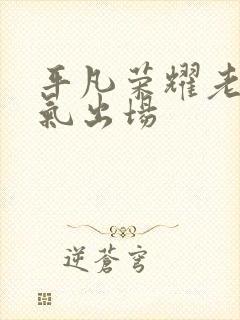 平凡荣耀老
氣出場
逆蒼穹